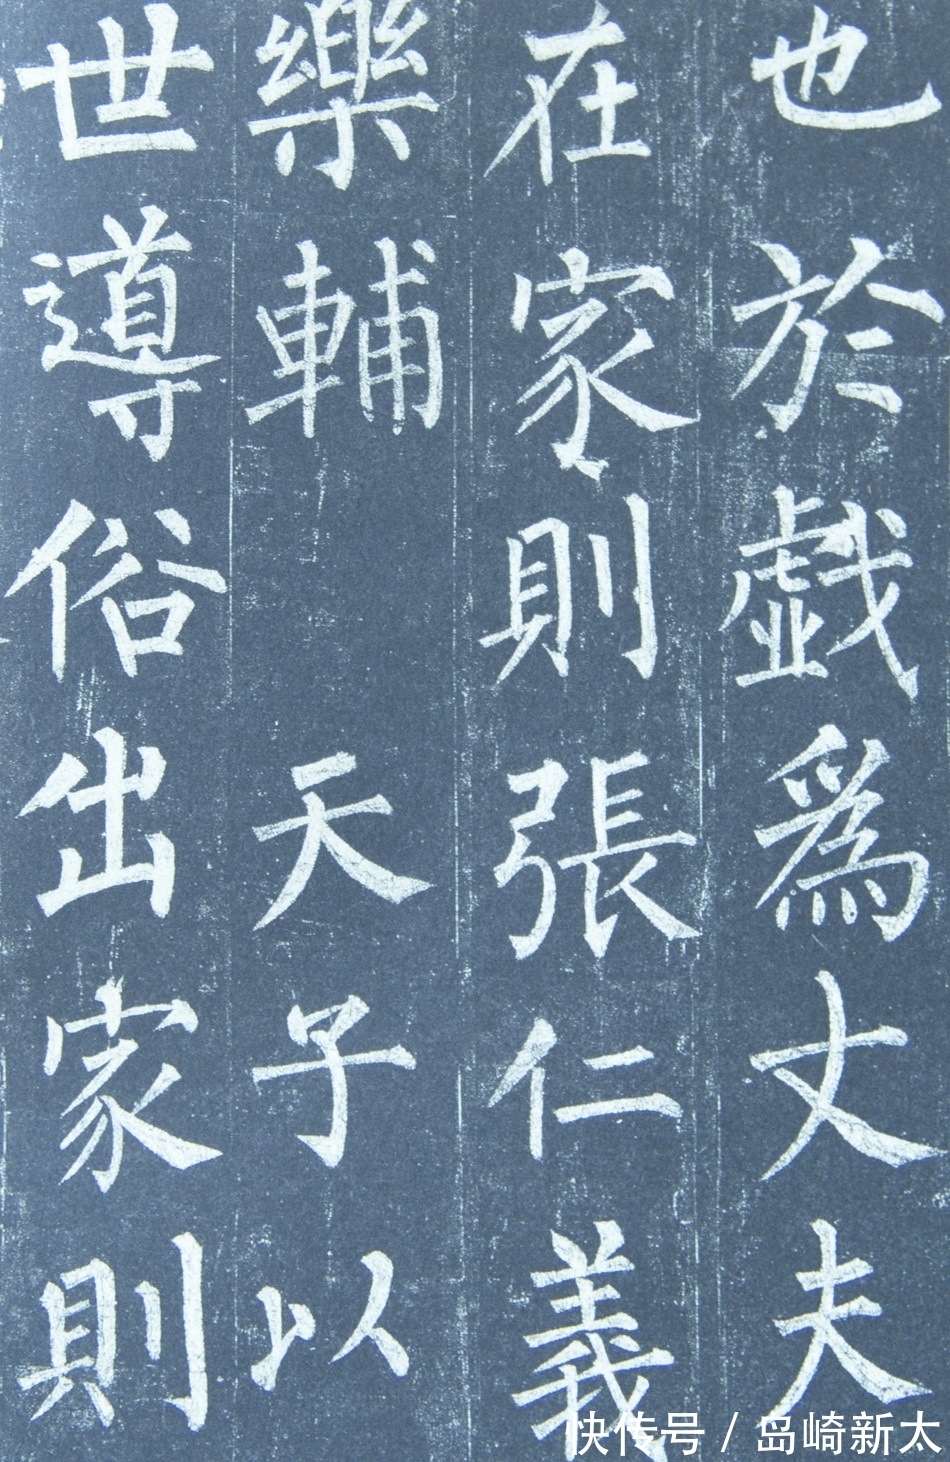 也於戯為丈夫
在家則張仁義
樂輔天子以
世導俗出家則
快传号 / 岛崎新太